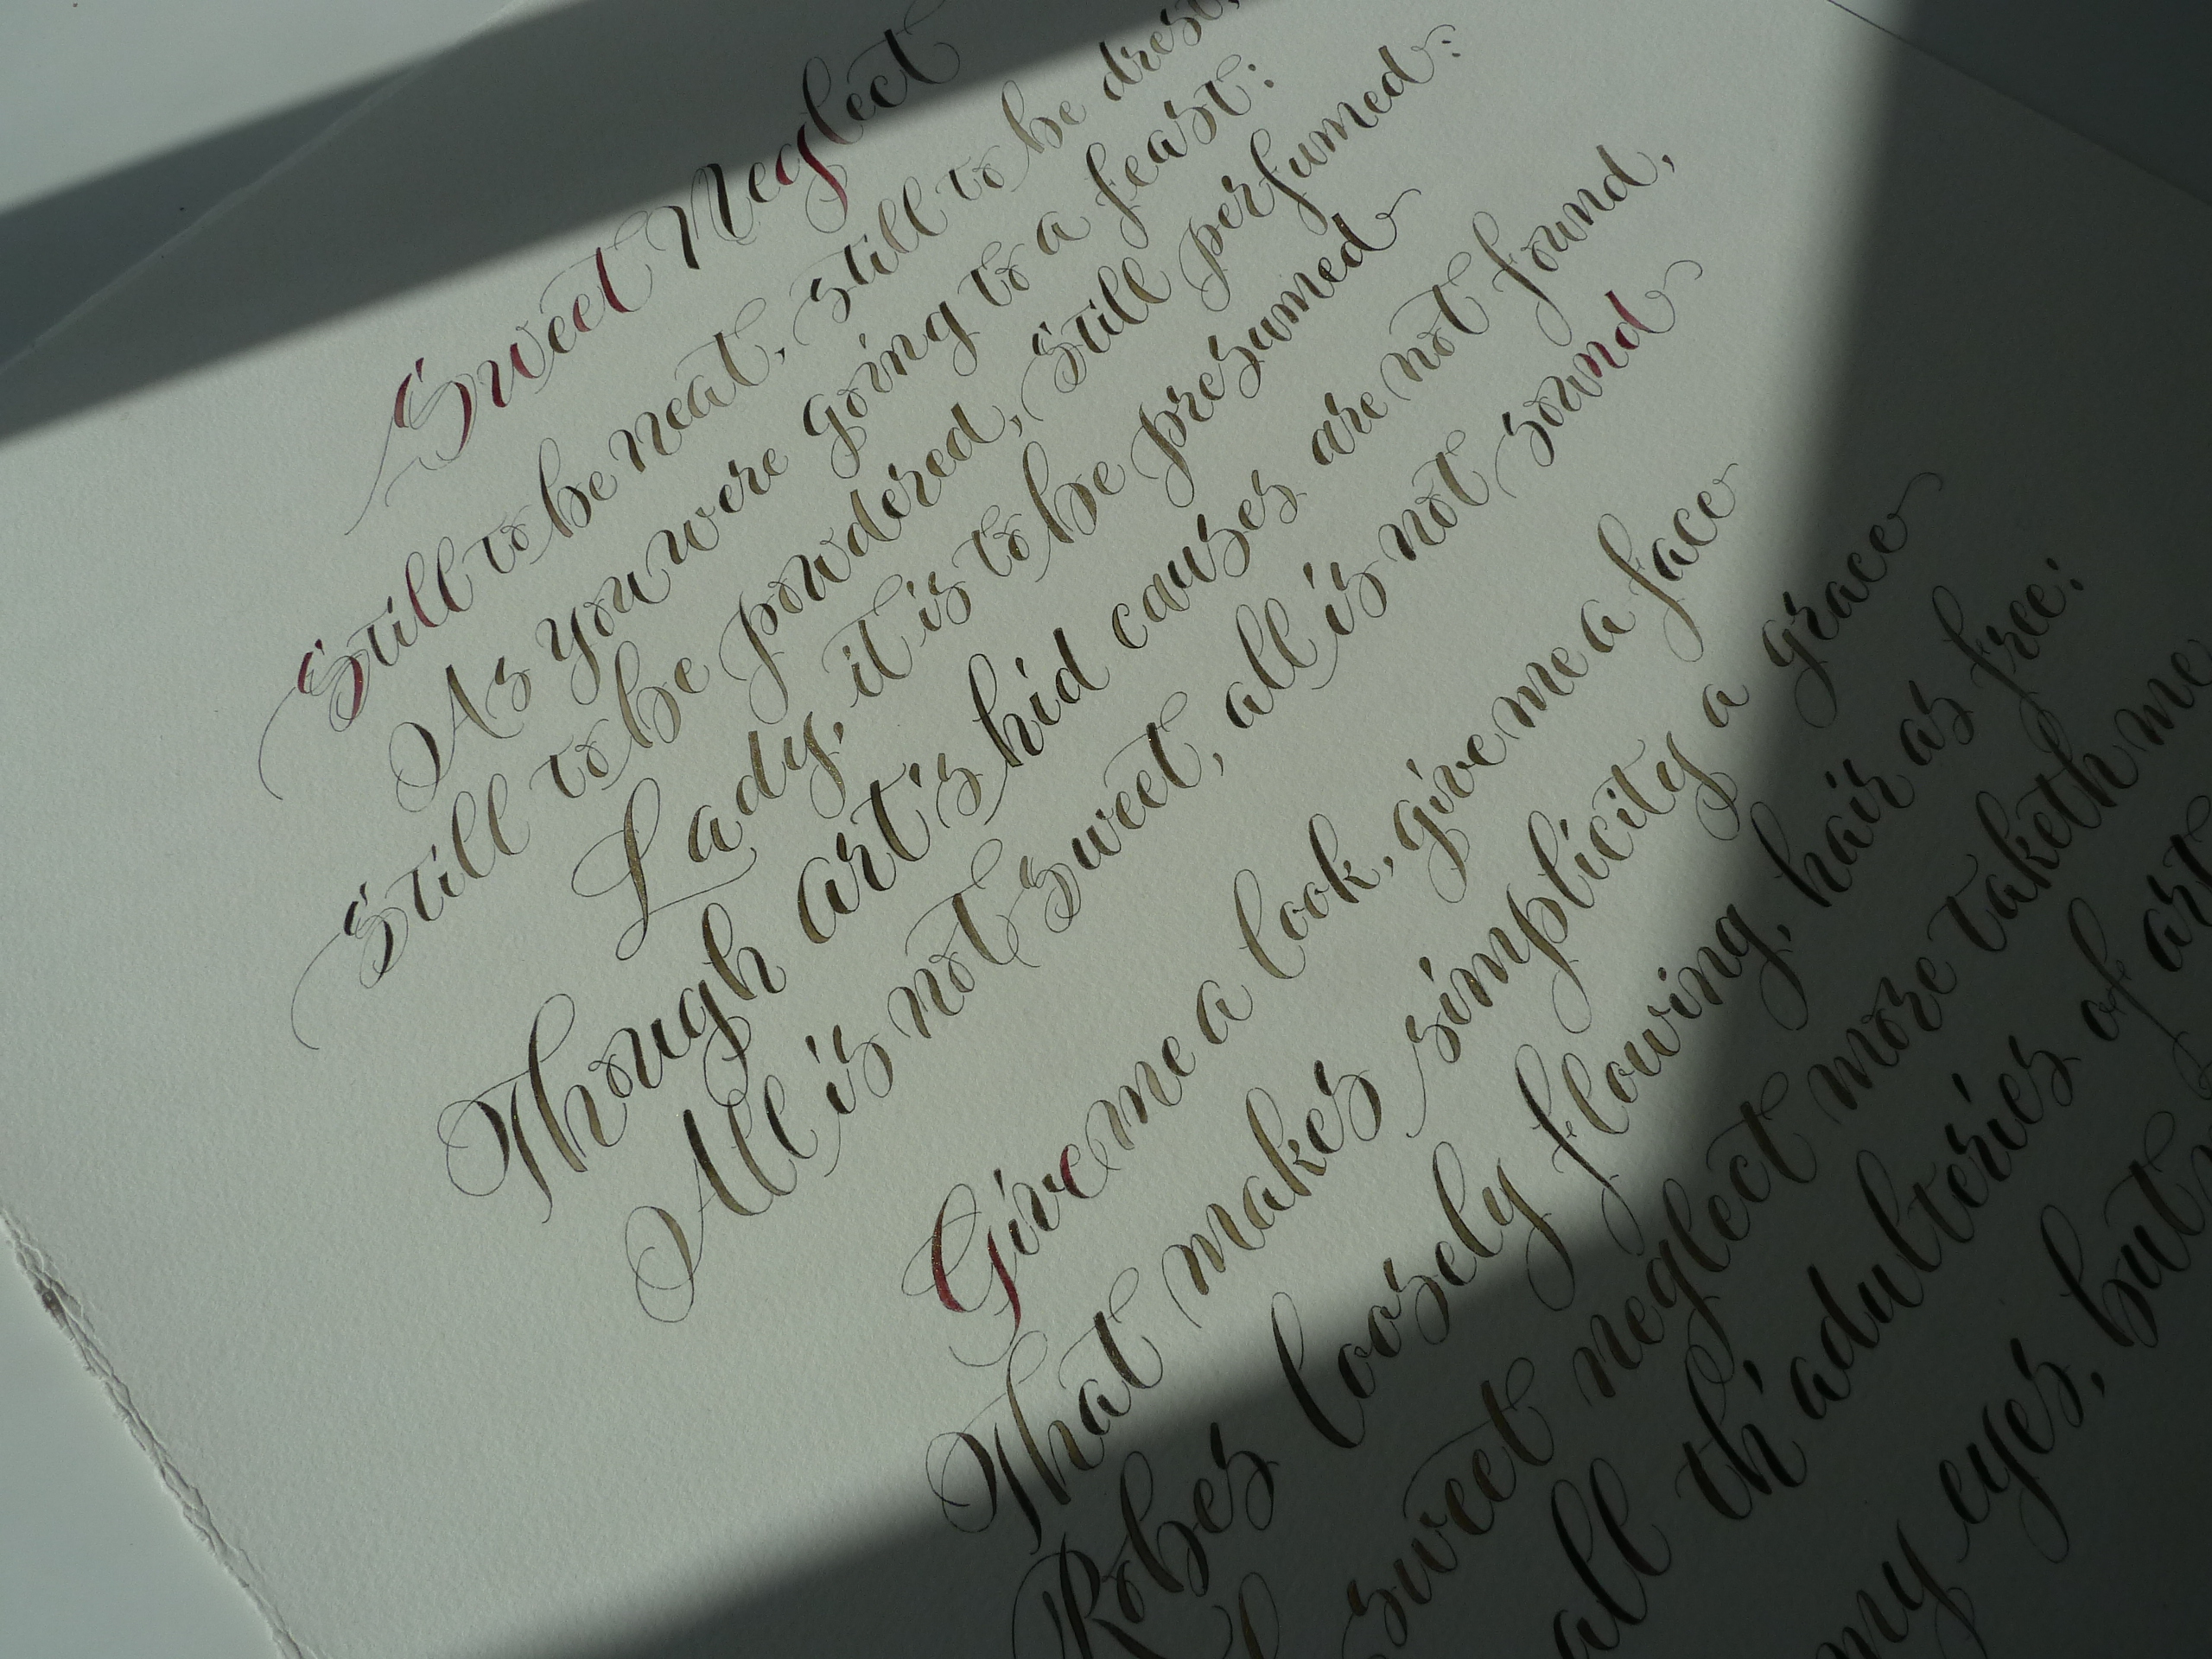 Sweet Neglect
Still to be neat, still to be drest,
As you were going to a feast:
Still to be powdered, still perfumed:
Lady, it is to be presumed
Though art's hid causes are not found,
All is not sweet, all is not sound
Give me a look, give me a face
That makes simplicity a grace
Robes loosely flowing, hair as free:
sweet neglect more taketh me
all th' adulteries of art
my eyes, but